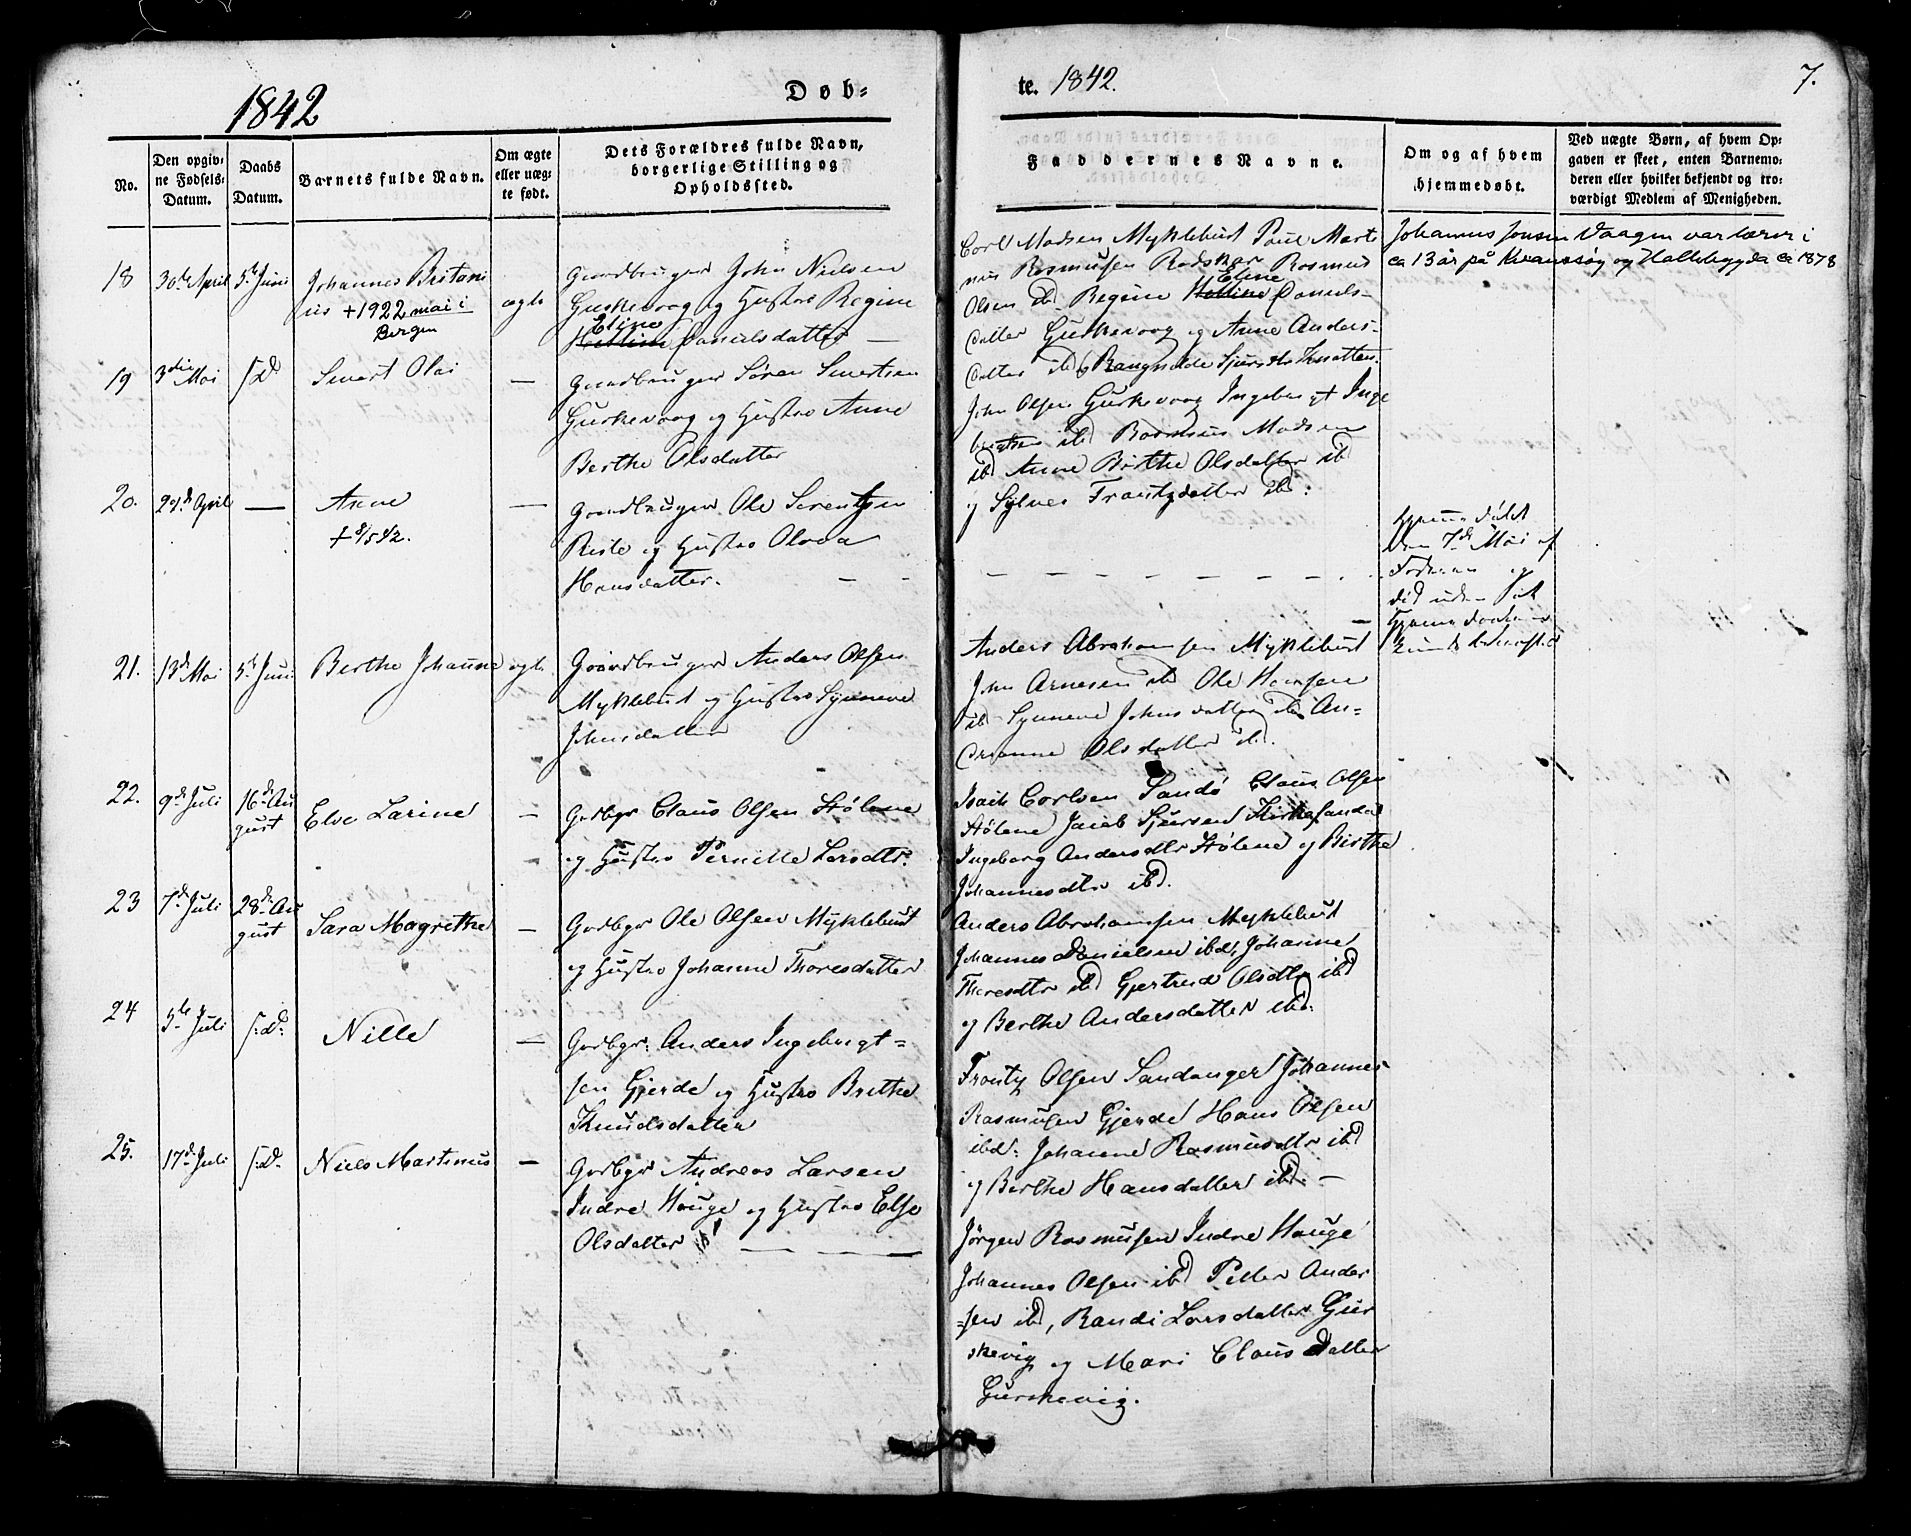 1842
Døb-
te. 1842.
7.
No.
Den opgiv-
ne Fødsels-
Datum.
Daabs
Datum.
Barnets fulde Navn.
Om ægte
eller uæg-
te født.
Dets Forældres fulde Navn,
borgerlige Stilling og
Opholdssted.
Faddernes Navne.
Om og af hvem
hjemmedøbt.
Ved uægte Børn, af hvem Op-
gaven er skeet, enten Barnemo-
deren eller hvilket bekjendt og tro-
værdigt Medlem af Menigheden.
18
30de April
5te Juni
Johannes
+ 1922 mai i
Bergen
ægte
Gaardbruger John Nielsen
Gurskevaag og Hustro Regine
Eline
Danielsdatter —
Carl Madsen Myklebust Paul Mart
nus Rasmusen Rødskar Rasmus
Eline
Olsen ibd Regine Daniels-
datter Gurskevaag og Anne Anders-
datter ibd
Johannes Jonsen Vaagen var lærer i
ca 13 år på Kvamsøy og Hallebygda ca 1878
19
3die Mai
s.D.
Sivert Olai
—
Gaardbruger Søren Sivertsen
Gurskevaag og Hustro Anne
Berthe Olsdatter
John Olsen Gurskevaag Ingebrigt Inge
brigtsen ibd Rasmus Madsen
ibd Anne Birthe Olsdatter ibd
og Frantzdatter ibd:
20.
29de April
—
Anne
+ 8/5 42.
—
Gaardbruger Ole Sorentsen
Riste og Hustro Olava
Hansdatter.
Hjemmedøbt
den 7de Mai af
Faderen og
død uden
21.
13de Mai
5te Juni
Berthe Johanne
ægte
Gaardbruger Anders Olsen
Myklebust og Hustro Synneve
Johnsdatter
Anders Abrahamsen Myklebust
John Arnesen ibd Ole Hansen
ibd Synneve Johnsdatter ibd An-
drianne Olsdatter ibd.
22.
9de Juli
16de Au
gust
Elve Larine
—
Gardbgr Claus Olsen Stølene
og Hustro Pernille Larsdtr.
Isach Carlsen Sandø Claus Olsen
Stølene Jacob Sjursen
Ingeborg Andersdtr Stølene og Birthe
Johannesdtr ibd.
23
7de Juli
28de Au
gust
Sara Magrethe
—
Gardbgr Ole Olsen Myklebust
og Hustro Johanne Thoresdatter
Anders Abrahamsen Myklebust
Johannes Danielsen ibd, Johanne
Thoresdtr ibd Gjertrud Olsdtr ibd
og Berthe Andersdatter ibd.
24
5te Juli
s.D.
Nille
—
Gardbgr. Anders Ingebrigt-
sen Gjerde og Hustro Brithe
Knudsdatter
Frantz Olsen Sandanger Johannes
Rasmusen Gjerde Hans Olsen
ibd. Johanne Rasmusdtr ibd
og Berthe Hansdatter ibd. —
25.
17de Juli
s.D.
Niels Martinus
—
Gardbgr Andreas Larsen
Indre Houge og Hustro Else
Olsdatter
Jörgen Rasmusen Indre Houge
Johannes Olsen ibd Petter Ander
-sen ibd, Randi Larsdatter Gur
skevig og Mari Clausdatter
Gurskevig.